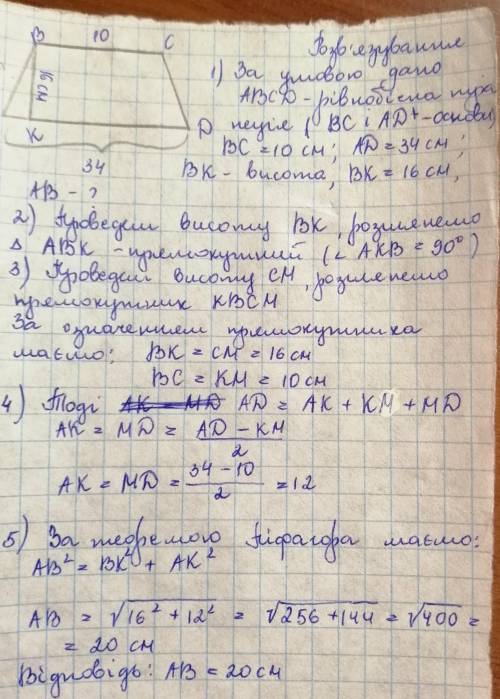 B 10 C
16 см
K D
34
AB - ?
Розв'язування
1) За умовою дано
ABCD - рівнобісна
пеція ( BC і AD - основи)
BC = 10 см; AD = 34 см;
BK - висота, BK = 16 см,
2) Проведем висоту BK, розглянемо
Δ ABK - прямокутний (∠ AKB = 90°)
3) Проведем висоту CM, розглянемо
прямокутник KBCM
За означенням прямокутника
маємо: BK = CM = 16 см
BC = KM = 10 см
4) Тоді AK = MD AD = AK + KM + MD
AK = MD = AD - KM / 2
AK = MD = 34 - 10 / 2 = 12
5) За теоремою Піфагора маємо:
AB² = BK² + AK²
AB = √16² + 12² = √256 + 144 = √400 =
= 20 см
Відповідь: AB = 20 см